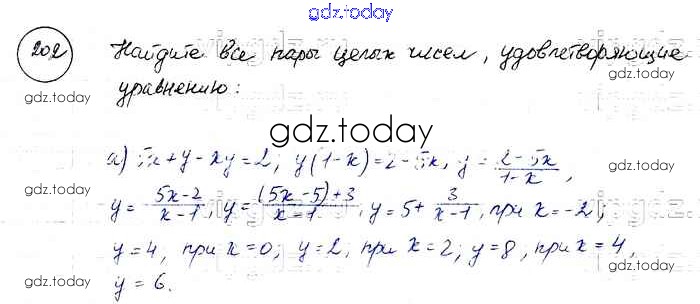 gdz.today
202 Найдите все пары целых чисел, удовлетворяющие
gdz.today gdz.today
уравнению:
gdz.today
а) 5x+y-xy=2; y(1-x)=2-5x, y = \frac{2-5x}{1-x},
y = \frac{5x-2}{x-1}, y = \frac{(5x-5)+3}{x-1}, y = 5 + \frac{3}{x-1}, при x=-2;
y=4, при x=0; y=2, при x=2; y=8, при x=4,
gdz.today gdz.today
y = 6.
gdz.today